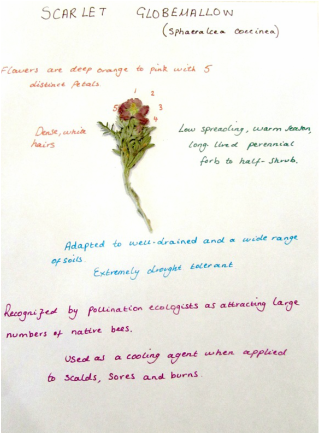 SCARLET GLOBEMALLOW
(Sphaeralcea coccinea)
Flowers are deep orange to pink with 5
distinct petals
1 2
5 3
4
Dense, white
hairs
Low spreading, warm season,
long lived perennial
forb to half-shrub.
Adapted to well-drained and a wide range
of soils.
Extremely drought tolerant
Recognized by pollination ecologists as attracting large
numbers of native bees.
Used as a cooling agent when applied
to scalds, sores and burns.